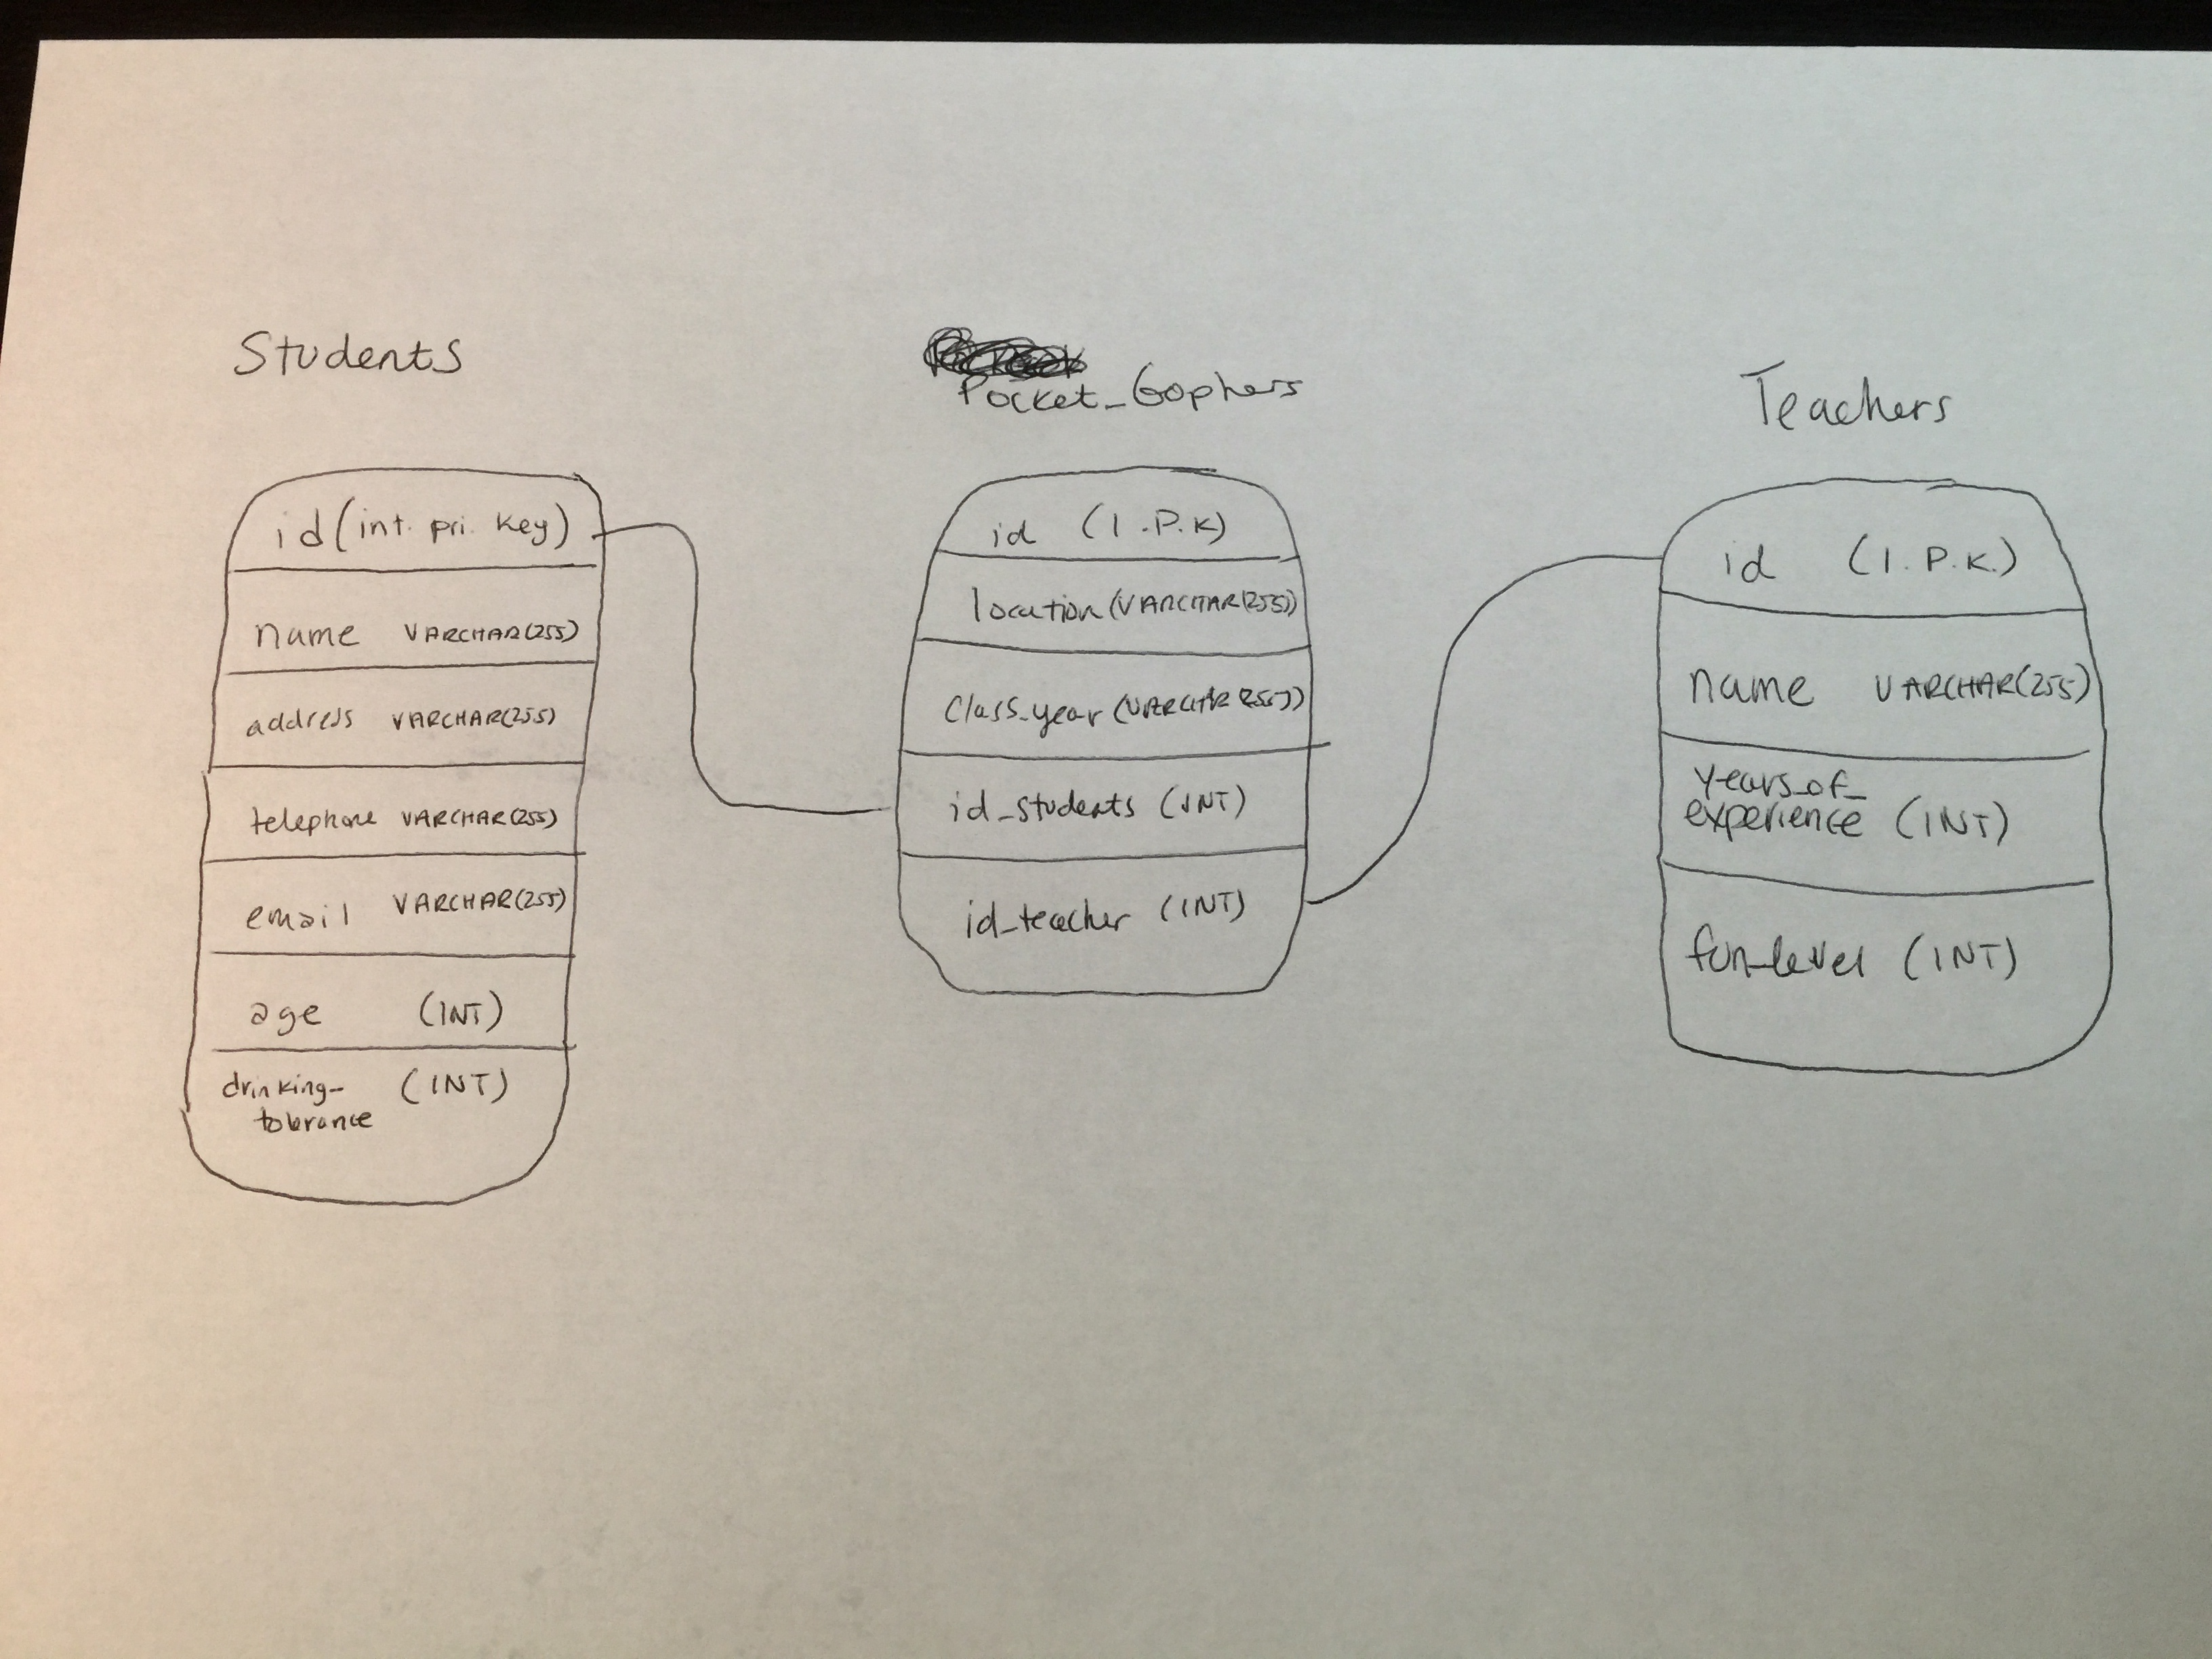 Students
id (int. pri. key)
name VARCHAR(255)
address VARCHAR(255)
telephone VARCHAR(255)
email VARCHAR(255)
age (INT)
drinking- (INT)
tolerance
Pocket_Gophers
id (I.P.K)
location (VARCHAR(255))
Class_year (VARCHAR(255))
id_students (INT)
id_teacher (INT)
Teachers
id (I.P.K.)
name VARCHAR(255)
years_of_
experience (INT)
fun_level (INT)